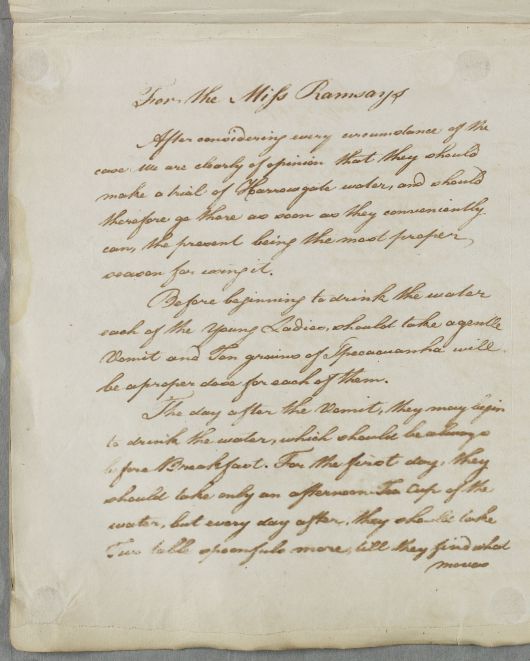 For the Miss Ramsays
After considering every circumstance of the
case we are clearly of opinion that they should
make a trial of Harrowgate water, and should
therefore go there as soon as they conveniently
can, the present being the most proper
season for using it.
Before beginning to drink the water
each of the Young Ladies, should take a gentle
Vomit and Ten grains of Ipecacuanha will
be a proper dose for each of them.
The day after the Vomit, they may begin
to drink the water, which should be always
before Breakfast. For the first day, they
should take only an afternoon Tea Cup of the
water, but every day after, they should take
Two table spoonfuls more, till they find what
moves